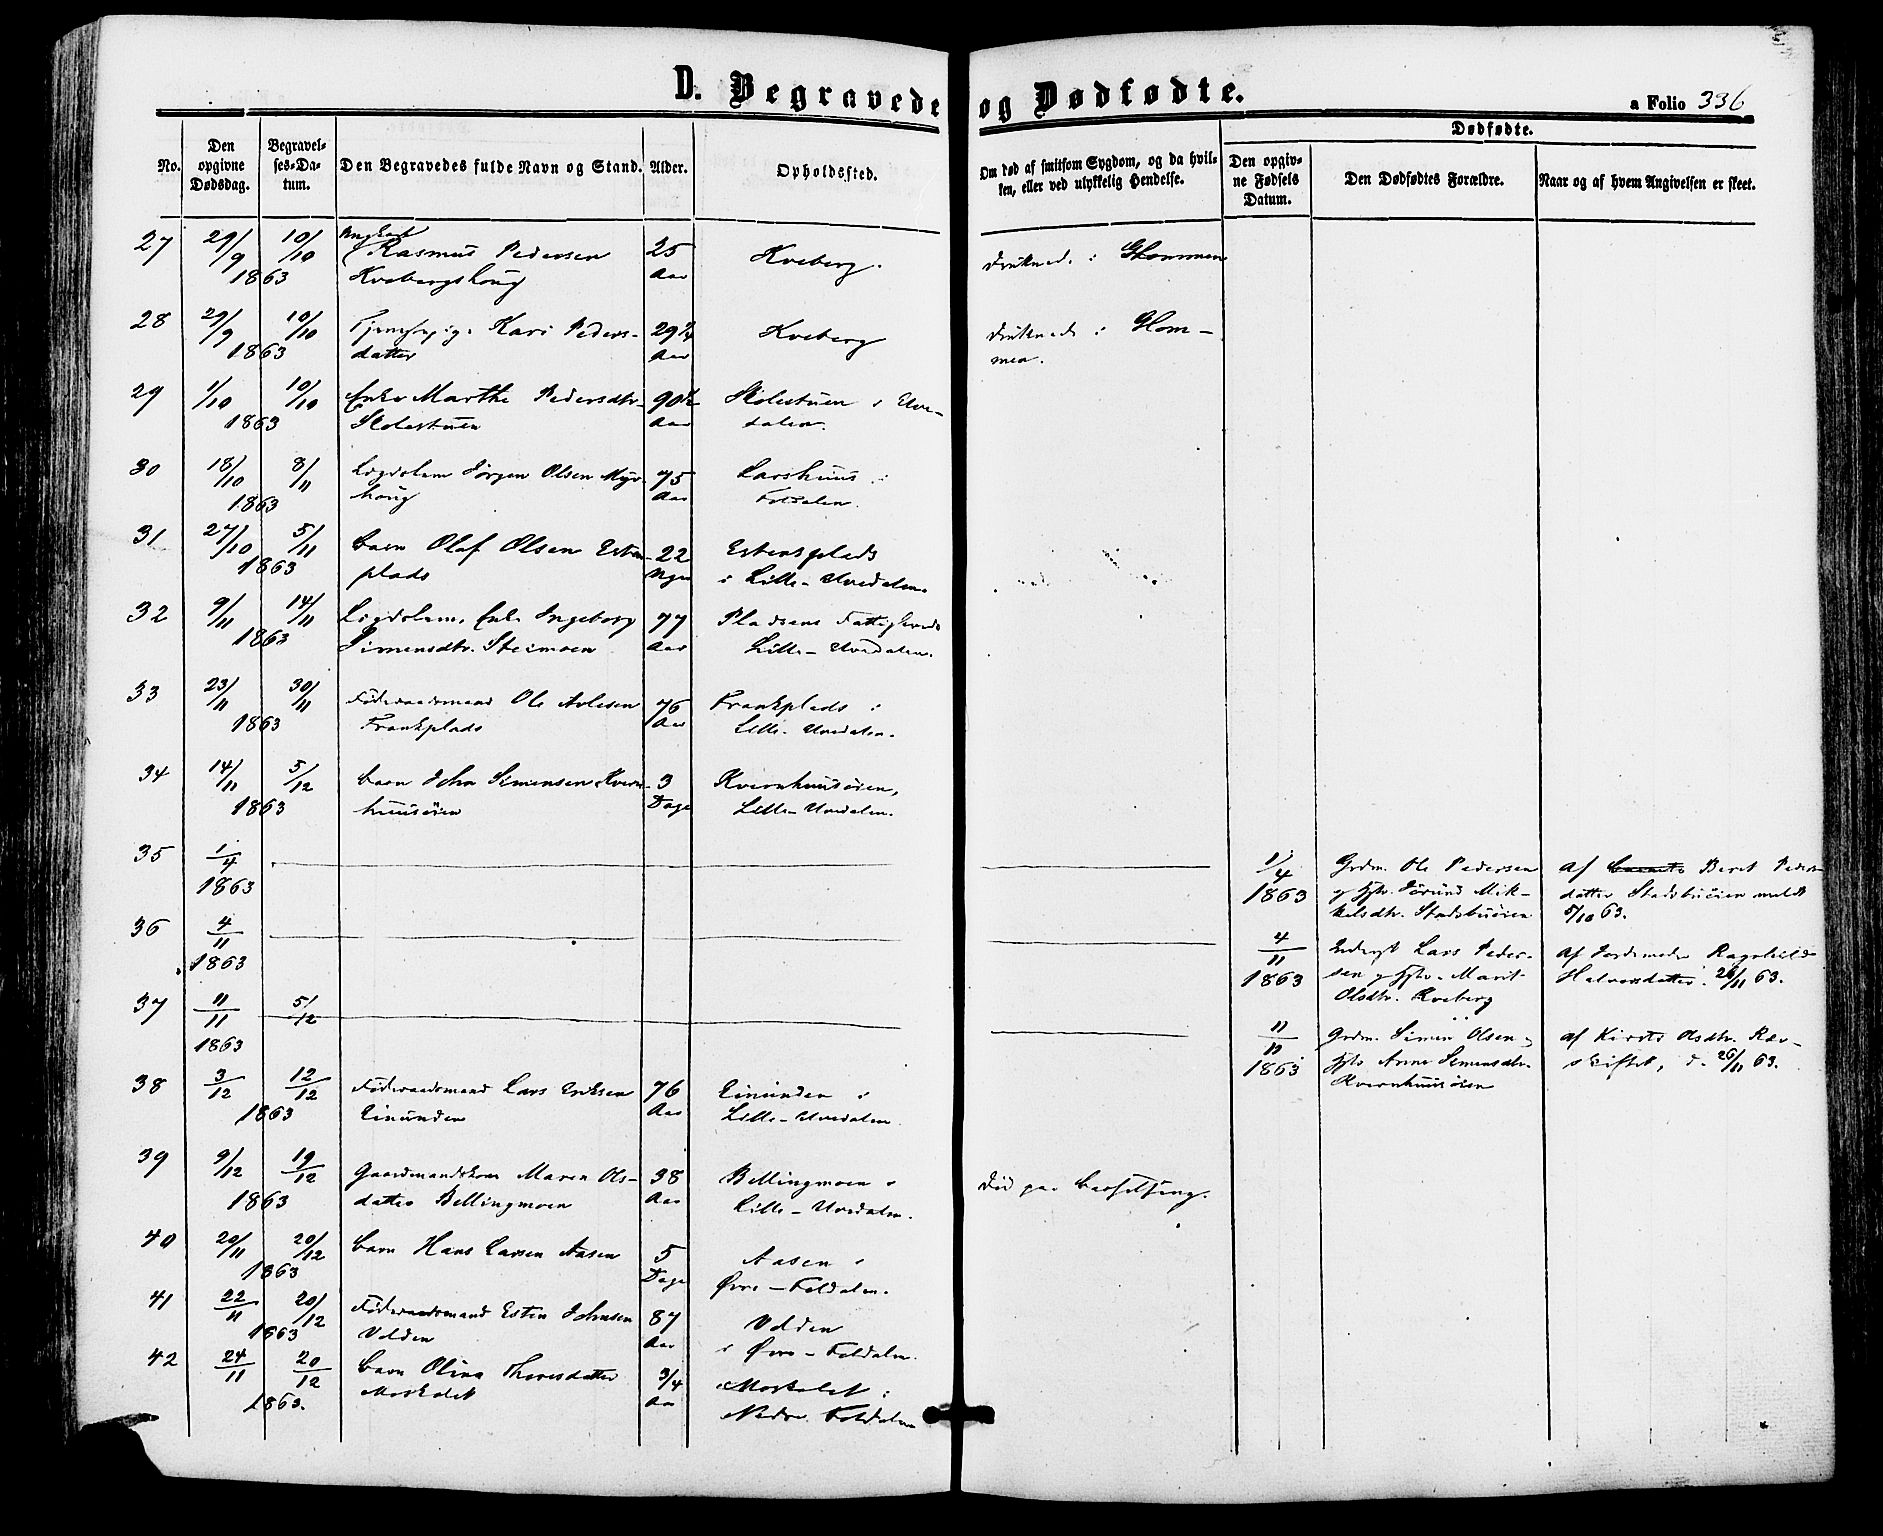 D. Begravede og Dødfødte.
a Folio 336
No.
Den opgivne Dødsdag.
Begravelses-Datum.
Den Begravedes fulde Navn og Stand.
Alder.
Opholdssted.
Om død af smitsom Sygdom, og da hvilken, eller ved ulykkelig Hendelse.
Dødfødte.
Den opgivne Fødsels Datum.
Den Dødfødtes Forældre.
Naar og af hvem Angivelsen er skeet.
27 29/9 10/10 Ungkarl Rasmus Pedersen 25 Kveberg. druknede i Glommen
1863 Kvebergshoug Aar
28 29/9 10/10 Kari Peders- 29 Kveberg druknede i Glom-
1863 datter Aar men.
29 1/10 10/10 Enke Marthe Pedersdtr. 90½ Skolestuen i Uve-
1863 Skolestuen Aar dalen.
30 18/10 8/11 Logdslem Jørgen Olsen Myr- 75 Larshuus i
1863 houg Aar Foldalen.
31 27/10 5/11 Barn Olaf Olsen Esten- 22 Estensplads
1863 plads Uger i Lille-Uvedalen.
32 9/11 14/11 Logdslem, Enke Ingeborg 77 Pladsen
1863 Simensdtr. Steimoen Aar Lille-Uvedalen.
33 23/11 30/11 Føderaadsmand Ole 76 Frankplads i
1863 Frankplads Aar Lille-Uvedalen.
34 14/11 5/12 Barn John Simensen Kvern- 3 Kvernhuusøien,
1863 huusøien Dage Lille-Uvedalen.
35 1/4 1/4 Grdm. Ole Pedersen af Beret Peders-
1863 1863 og Hstr. Jørund Mik- datter Stadsbuøien meldt
kelsdtr. Stadsbuøien 5/10 63.
36 4/11 4/11 Inderst Lars Peder- af Jordemoder Ragnhild
1863 1863 sen og Hstr. Marit Halvorsdatter. 26/11 63.
Olsdtr. Kveberg
37 11/11 5/12 11/11 Grdm. Simen Olsen og af Kirsti Olsdtr. Røv-
1863 1863 Hstr. Anne Simensdtr. skiftet, d. 26/11 63.
Kvernhuusøien
38 3/12 12/12 Føderaadsmand Lars Eriksen 76 Einunden i
1863 Einunden Aar Lille-Uvedalen.
39 9/12 19/12 Gaardmandskone Maren Ols- 38 Bellingmoen i Død paa Barselseng.
1863 datter Bellingmoen Aar Lille-Uvedalen.
40 20/11 20/12 Barn Hans Larsen Aasen 5 Aasen i
1863 Dage Øvre-Foldalen.
41 22/11 20/12 Føderaadsmand Esten Johnsen 87 Volden
1863 Volden Aar i Øvre-Foldalen.
42 24/11 20/12 Barn Olina Thoresdatter 3/4 Moskolet i
1863. Moskolet Aar Nedre Foldalen